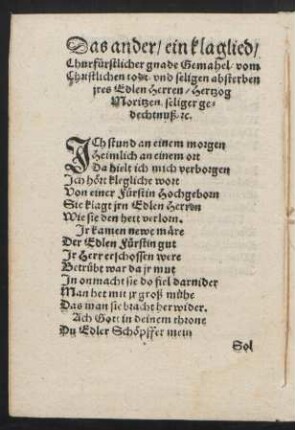 Das ander/ ein klaglied/
Churfürstlicher gnade Gemahel/ vom
Christlichen todt/ vnd seligen absterben
jres Edlen Herren/ Hertzog
Moritzen/ seliger ge-
dechtnuß/ ꝛc.
ICh stund an einem morgen
Heimlich an einem ort
Da hielt ich mich verborgen
Ich hört klegliche wort
Von einer Fürstin Hochgeborn
Sie klagt jrn Edlen Herren
Wie sie den hett verlorn.
Ir kamen newe märe
Der Edlen Fürstin gut
Ir Herr erschossen were
Betrübt war da jr mut
In onmacht sie do fiel darnider
Man het mit jr groß mühe
Das man sie bracht her wider.
Ach Gott in deinem throne
Du Edler Schöpffer mein
Sol